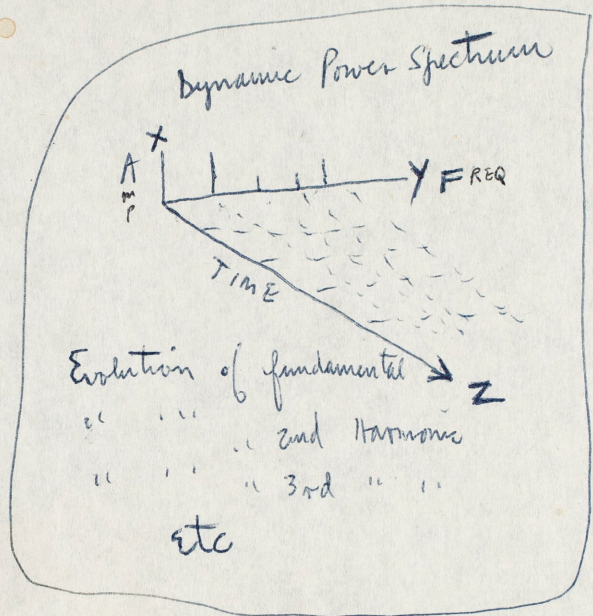 Dynamic Power Spectrum
X
Amp
Y FREQ
TIME
Z
Evolution of fundamental
" " " 2nd Harmonic
" " " 3rd " "
Etc